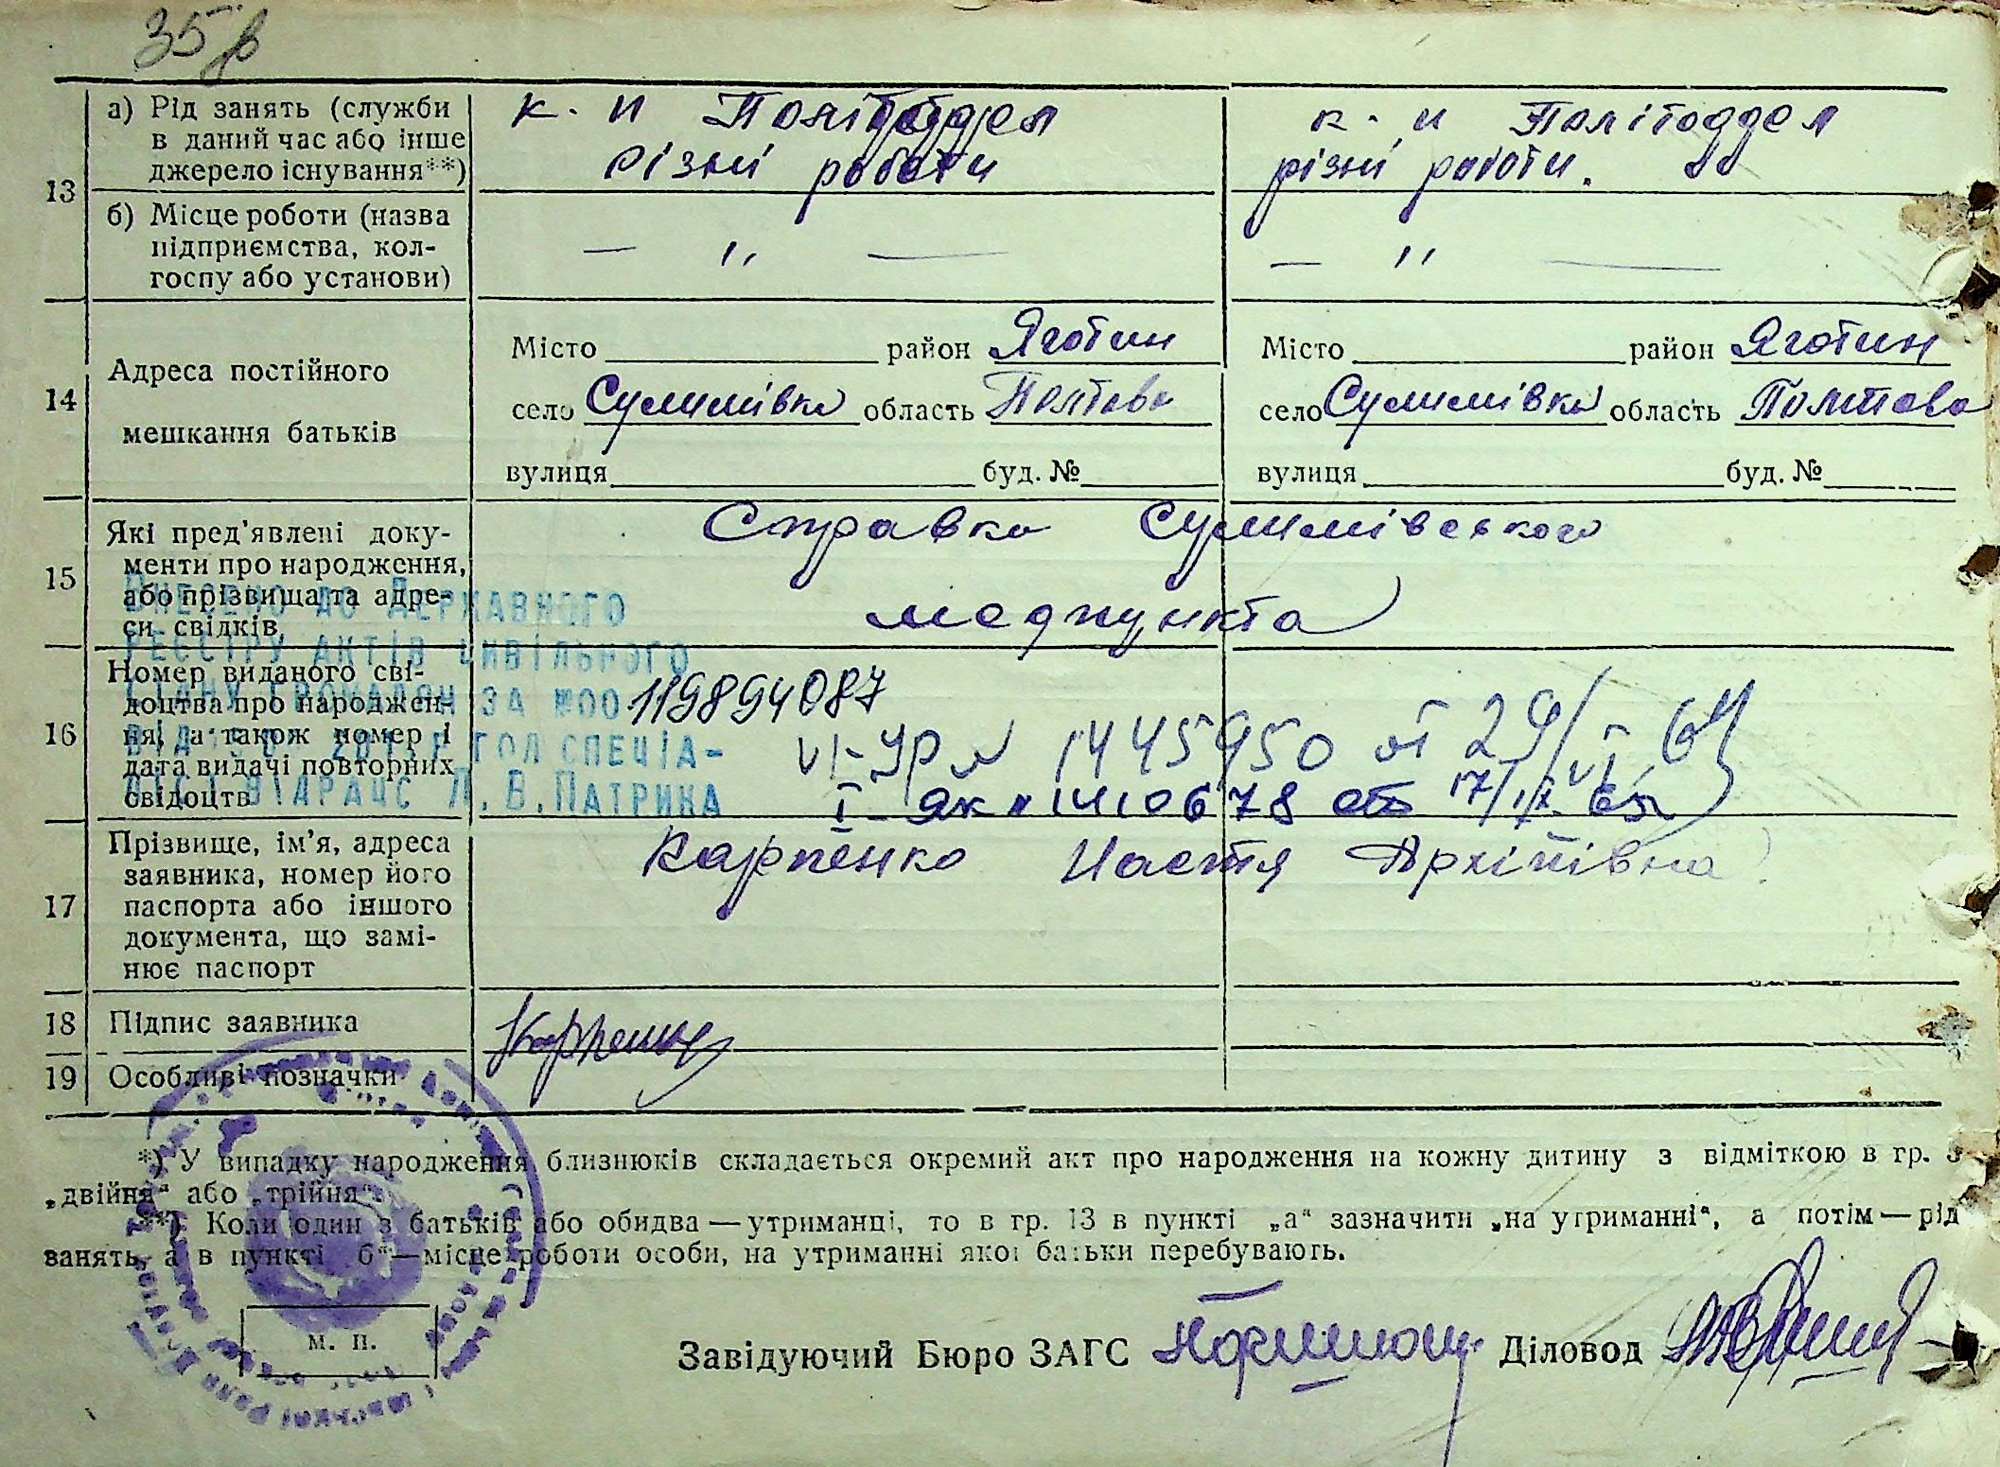 35
а) Рід занять (служби в даний час або інше джерело існування**)
к. и Політоддел
різні роботи
к. и Політоддел
різні роботи.
13
б) Місце роботи (назва підприємства, колгоспу або установи)
— " —
— " —
14
Адреса постійного мешкання батьків
Місто район Яготин
село Сулимівка область Полтава
вулиця буд. №
Місто район Яготин
село Сулимівка область Полтава
вулиця буд. №
15
Які пред'явлені документи про народження, або прізвища та адреси свідків
Справка Сулимівського
медпункта
Внесено до Державного
реєстру актів цивільного
стану громадян за №00 119894087
гол.спеціа-
Л.В.Патрика
16
Номер виданого свідоцтва про народження, а також номер і дата видачі повторних свідоцтв
VI-УР № 1445950 от 29/VI 64
I-ЯК № 1410678 от 17/IX
17
Прізвище, ім'я, адреса заявника, номер його паспорта або іншого документа, що замінює паспорт
Карпенко Настя Архіпівна
18
Підпис заявника
Карпенко
19
Особливі позначки
*) У випадку народження близнюків складається окремий акт про народження на кожну дитину з відміткою в гр. 3
„двійня“ або „трійня“.
**) Коли один з батьків або обидва — утриманці, то в гр. 13 в пункті „а“ зазначити „на утриманні“, а потім — рід
занять, а в пункті „б“ — місце роботи особи, на утриманні якої батьки перебувають.
М. П.
Завідуючий Бюро ЗАГС
Діловод